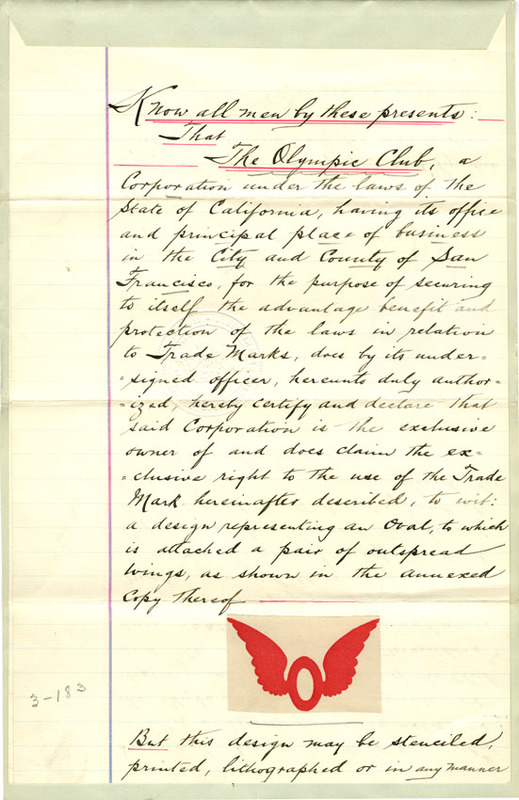 Know all men by these presents:
That
The Olympic Club, a
Corporation under the laws of the
State of California, having its office
and principal place of business
in the City and County of San
Francisco, for the purpose of securing
to itself the advantage benefit and
protection of the laws in relation
to Trade Marks, does by its under=
=signed officer, hereunto duly author=
=ized, hereby certify and declare that
said Corporation is the exclusive
owner of and does claim the ex=
=clusive right to the use of the Trade
Mark hereinafter described, to wit:
a design representing an Oval, to which
is attached a pair of outspread
wings, as shown in the annexed
Copy thereof
3-183
But this design may be stenciled,
printed, lithographed or in any manner